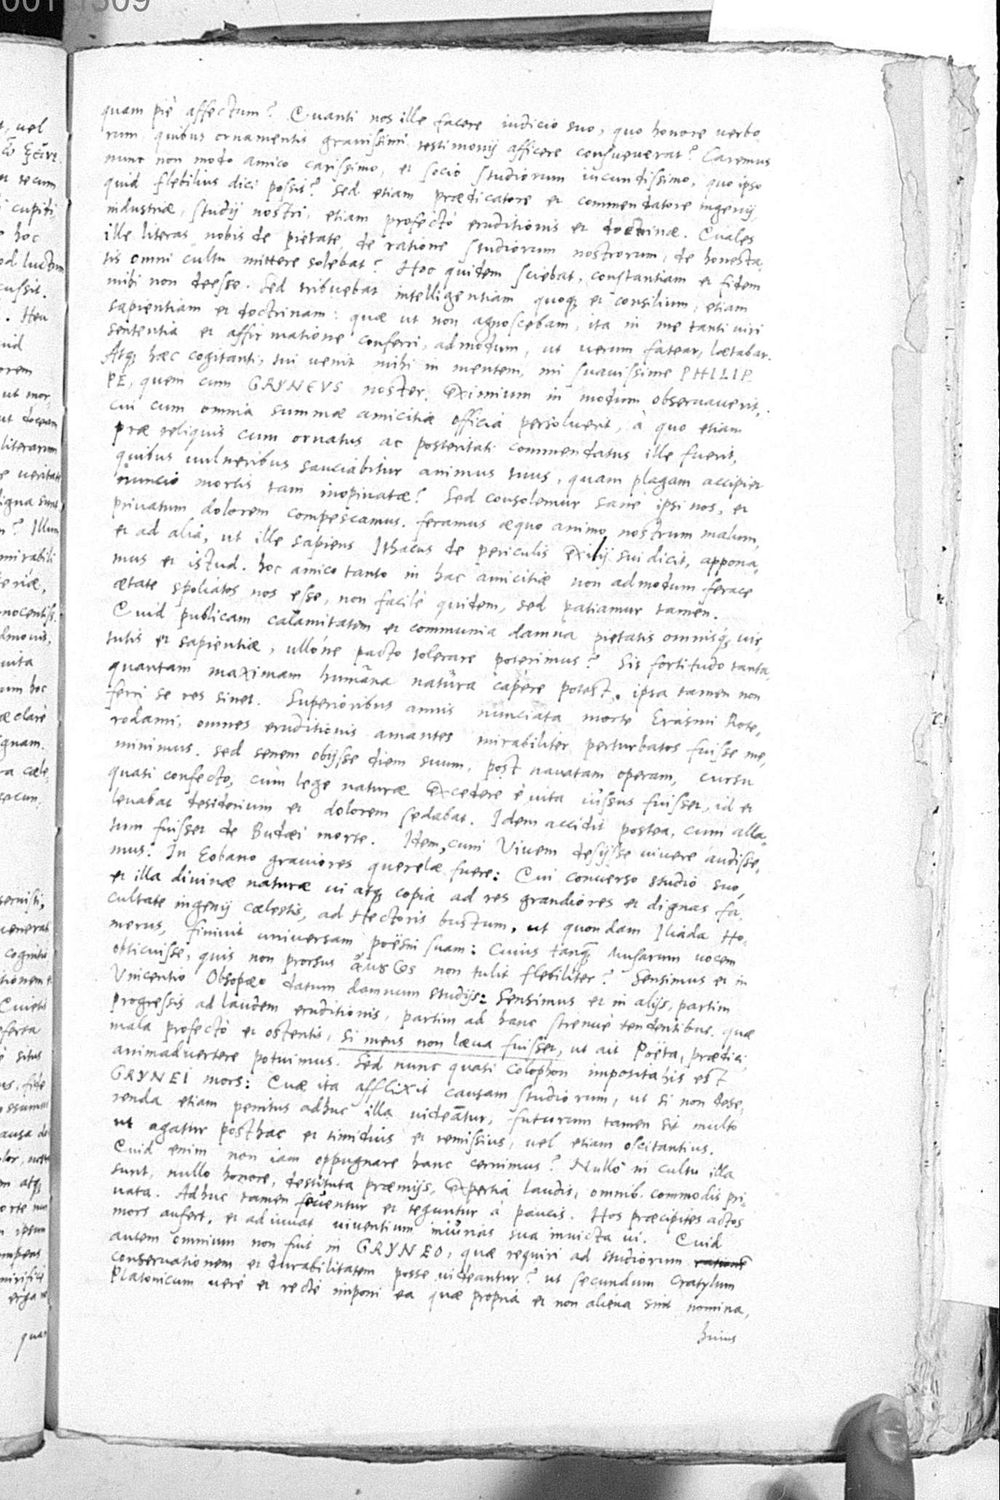 quam piè affectum? Quanti nos ille facere iudicio suo, quo honore verbo
rum quibus ornamentis gravissimi testimonij afficere consueverat? Caremus
nunc non modo amico carissimo, et socio studiorum iucundissimo, quo ipso
quid flebilius dici possit? sed etiam prædicatore et commendatore ingenij,
industriæ, studij nostri, etiam profectò eruditionis et doctrinæ. Quales
ille literas nobis de pietate, de ratione studiorum nostrorum, de honesta,
tis omni cultu mittere solebat? Hoc quidem sciebat, constantiam et fidem
mihi non deesse. Sed tribuebat intelligentiam quoq, et consilium, etiam
sapientiam et doctrinam: quæ ut non agnoscebam, ita in me tanti viri
sententia et affirmatione conferri, admodum, ut verum fatear, lætabar.
Atq, hæc cogitanti, tui venit mihi in mentem, mi suavissime PHILIP
PE, quem cum GRYNEVS noster, eximium in modum observaverit,
cui cum omnia summæ amicitiæ officia persolverit, à quo etiam
præ reliquis cum ornatus ac posteritati commendatus ille fuerit,
quibus vulneribus sauciabitur animus tuus, quam plagam accipiet
nuncio mortis tam inopinatæ? Sed consolemur sane ipsi nos, et
privatum dolorem compescamus. feramus æquo animo nostrum malum,
et ad alia, ut ille sapiens Ithacus de periculis exilij sui dicit, appona,
mus et istud. hoc amico tanto in hac amicitiæ non admodum ferace
ætate spoliatos nos esse, non facilè quidem, sed patiamur tamen.
Quid publicam calamitatem et communia damna pietatis omnisq, vir,
tutis et sapientiæ, ullóne pacto tolerare poterimus? Sit fortitudo tanta,
quantam maximam humana natura capere potest, ipsa tamen non
ferri se res sinet. Superioribus annis nunciata morte Erasmi Rote,
rodami, omnes eruditionis amantes mirabiliter perturbatos fuisse me,
minimus. sed senem obijsse diem suum, post navatam operam, cursu
quasi confecto, cùm lege naturæ excedere è vita iussus fuisset, id et
levabat desiderium et dolorem sedabat. Idem accidit postea, cum alla,
tum fuisset de Budæi morte. Item, cum Vivem desijsse vivere audisse,
mus. In Eobano graviores querelæ fuere: Qui converso studio suo,
et illa divinæ naturæ vi atq, copia ad res grandiores et dignas fa,
cultate ingenij cælestis, ad Hectoris bustum, ut quondam Iliada Ho,
merus, finivit universam poësin suam: Cuius tanq, Musarum vocem
obticuisse, quis non prorsus non tulit flebiliter? Sensimus et in
Vincentio Obsopæo datum damnum studijs: Sensimus et in alijs, partim
progressis ad laudem eruditionis, partim ad hanc strenuè tendentibus. quæ
mala profectò et ostentis, si mens non læva fuisset, ut ait Poëta, prædici,
animadvertere potuimus. Sed nunc quasi Colophon impositahis est
GRYNEI mors: Quæ ita afflixit causam studiorum, ut si non dese,
renda etiam penitus adhuc illa videatur, futurum tamen sit multo
ut agatur posthac et timidius et remissius, vel etiam oscitantius.
Quid enim non iam oppugnare hanc cernimus? Nullo in cultu illa
sunt, nullo honore, destituta præmijs, expertia laudis, omnib. commodis pri,
vata. Adhuc tamen foventur et teguntur à paucis. Hos præcipites actos
mors aufert, et adiuvat viventium iniurias sua invicta vi. Quid
autem omnium non fuit in GRYNEO, quæ requiri ad studiorum
conservationem et durabilitatem posse videantur? ut secundum Cratylum
Platonicum verè et rectè imponi ea quæ propria et non aliena sint nomina,
huius